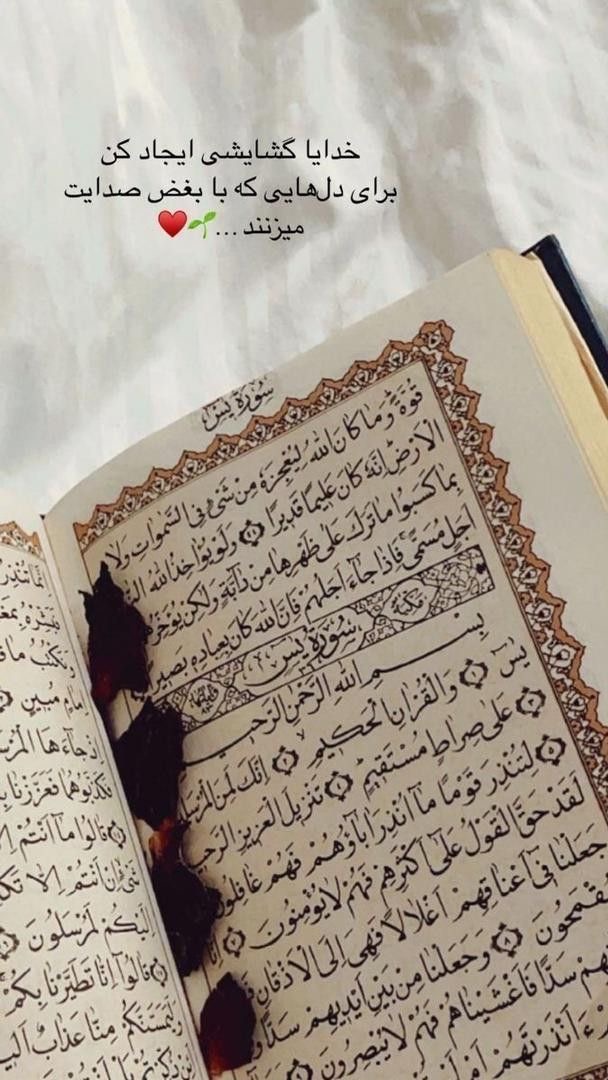 خدایا گشایشی ایجاد کن
برای دل‌هایی که با بغض صدایت
میزنند ...🌱♥️
سورة يس
قوة وما كان الله ليعجزه من شيء في السموات ولا
الارض انه كان عليما قديرا ولو يؤاخذ الله
بما كسبوا ما ترك على ظهرها من دابة ولكن يؤخرهم
اجل مسمى فاذا جاء اجلهم فان الله كان بعباده بصيرا
سورة يس
مكية
بسم الله الرحمن الرحيم
يس والقران الحكيم انك لمن المرسلين
على صراط مستقيم تنزيل العزيز الرحيم
لتنذر قوما ما انذر اباؤهم فهم غافلون
لقد حق القول على اكثرهم فهم لا يؤمنون انا
جعلنا في اعناقهم اغلالا فهي الى الاذقان
مقمحون وجعلنا من بين ايديهم سدا
سدا فاغشيناهم فهم لا يبصرون
ءانذرتهم ام لم
انما تنذر
مبين
اذ جاءها
فكذبوهما فعززنا
قالوا ما انتم
شيء ان انتم الا
اليكم لمرسلون
قالوا انا تطيرنا بكم
وليمسنكم منا عذاب اليم